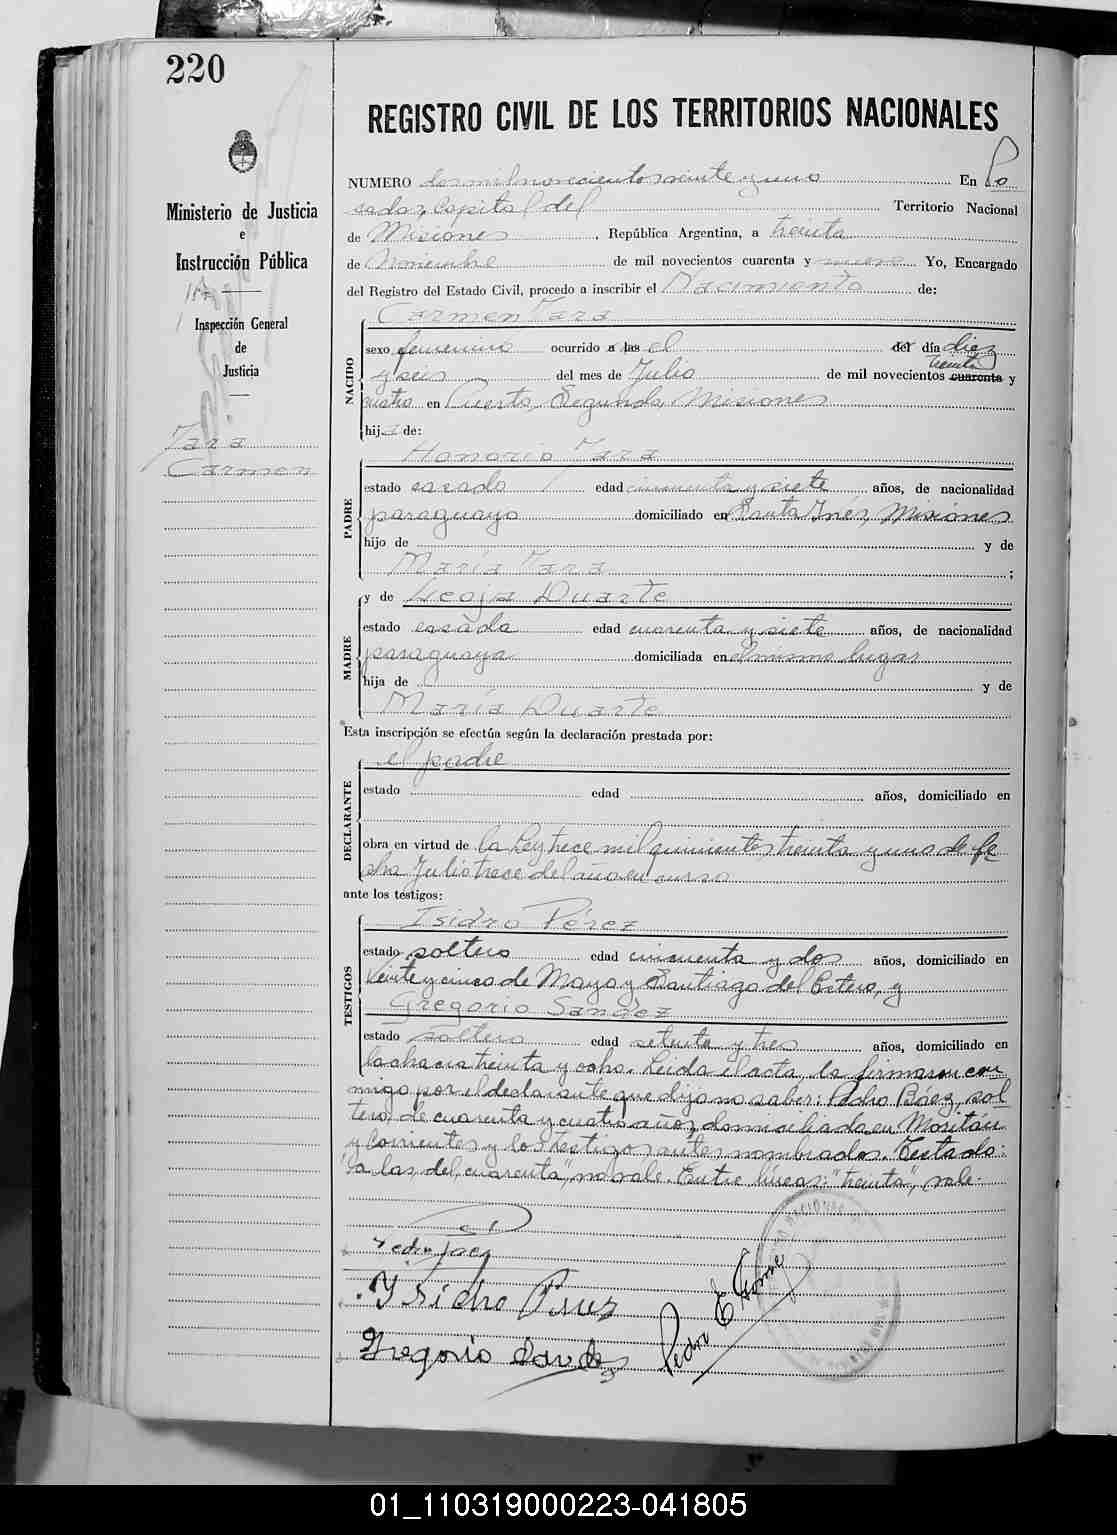 220
REGISTRO CIVIL DE LOS TERRITORIOS NACIONALES
Ministerio de Justicia
e
Instrucción Pública
Inspección General
de
Justicia
Jara
Carmen
NUMERO dos mil novecientos veinte y uno En Po
sadas, Capital del Territorio Nacional
de Misiones, República Argentina, a treinta
de Noviembre de mil novecientos cuarenta y nueve Yo, Encargado
del Registro del Estado Civil, procedo a inscribir el Nacimiento de:
Carmen Jara
NACIDO
sexo femenino ocurrido a las el del día diez
treinta
y seis del mes de Julio de mil novecientos cuarenta y
cuatro en Puerto Segundo, Misiones
hija de:
Honorio Jara
PADRE
estado casado edad cincuenta y siete años, de nacionalidad
paraguayo domiciliado en Santa Inés, Misiones
hijo de y de
María Jara ;
y de Duarte
MADRE
estado casada edad cuarenta y siete años, de nacionalidad
paraguaya domiciliada en el mismo lugar
hija de y de
María Duarte
Esta inscripción se efectúa según la declaración prestada por:
el padre
DECLARANTE
estado edad años, domiciliado en
obra en virtud de la Ley trece mil quinientos treinta y uno de fe
cha Julio trece del año en curso
ante los testigos:
Isidro Pérez
TESTIGOS
estado soltero edad cincuenta y dos años, domiciliado en
Veinte y cinco de Mayo y Santiago del Estero, y
Gregorio Sandez
estado soltero edad setenta y tres años, domiciliado en
la chacra treinta y ocho. Leida el acta, la firmaron con
migo por el declarante que dijo no saber: Pedro Báez, sol
tero, de cuarenta y cuatro años, domiciliado en
y Corrientes y los testigos antes nombrados. Testado:
"a las, del, cuarenta", no vale. Entre líneas: "treinta", vale.
Pedro Baez
Ysidro Perez
Gregorio Sandes
Pedro E
01_110319000223-041805